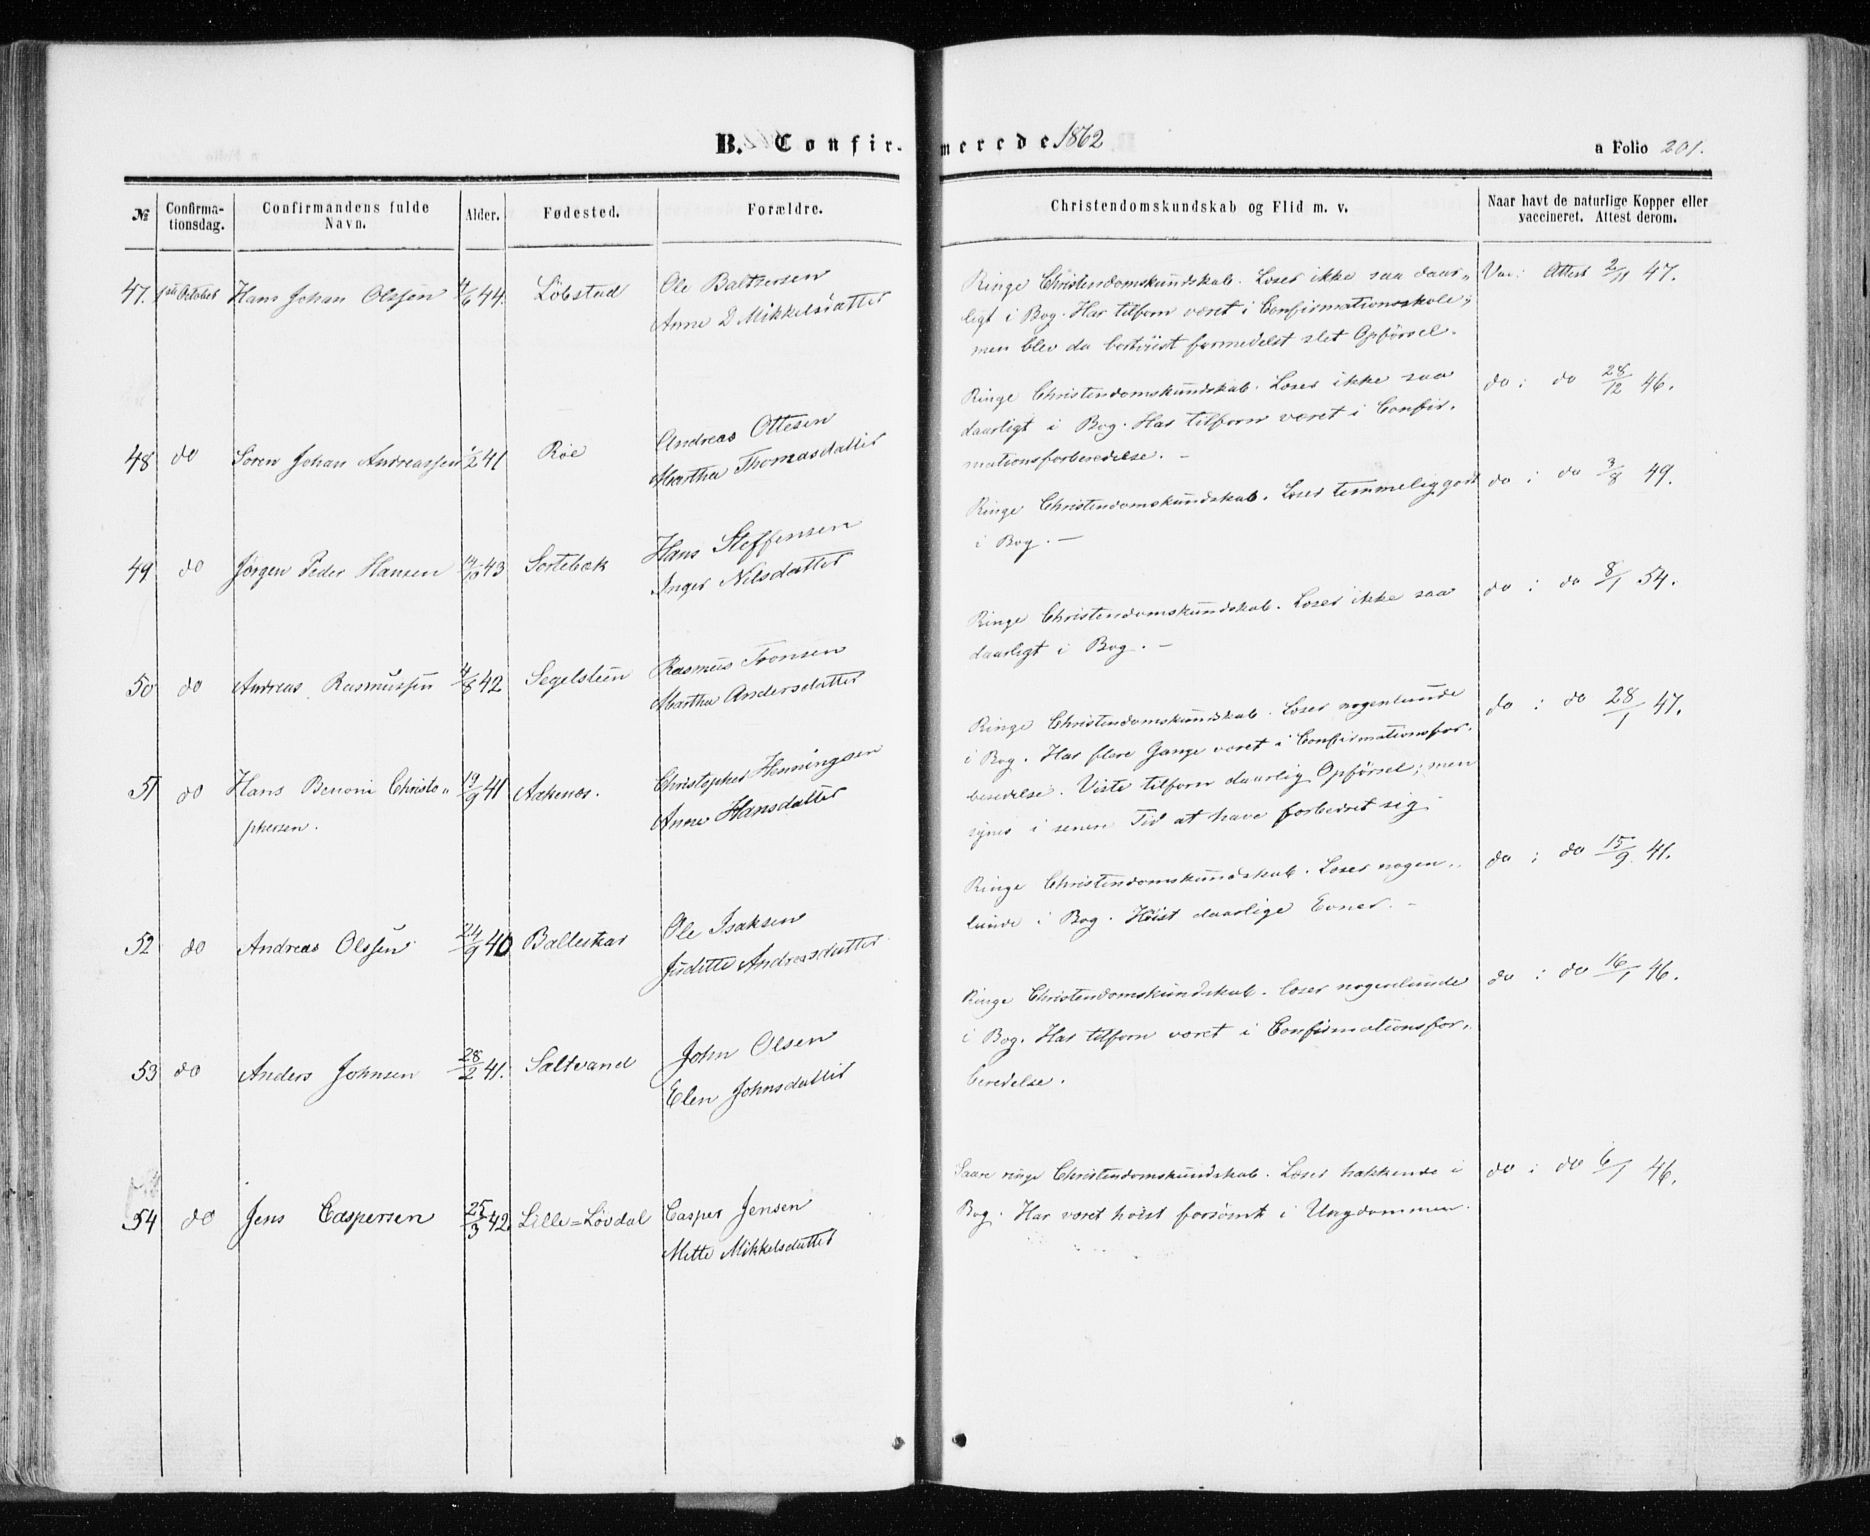 B. Confirmerede 1862
a Folio 201.
№ Confirmationsdag. Confirmandens fulde Navn. Alder. Fødested. Forældre. Christendomskundskab og Flid m. v. Naar havt de naturlige Kopper eller vaccineret. Attest derom.
47. October Hans Johan Olssen 4/6 44. Löbstad Ole Baltzersen
Anne D Mikkelsdatter
Ringe Christendomskundskab. Læser ikke saa daar„
ligt i Bog. Har tilforn været i Confirmationsskole;
men blev da bortviist formedelst slet Opförsel.
Vac: Attest 2/11 47.
48 do Sören Johan Andreassen 1/2 41 Röe Andreas Ottesen
Martha Thomasdatter
Ringe Christendomskundskab. Læser ikke saa
daarligt i Bog. Har tilforn været i Confir„
mationsforberedelse. –
do : do 28/12 46.
49 do Jörgen Peder Hansen 14/10 43 Sortebæk Hans Steffensen
Inger Nilsdatter
Ringe Christendomskundskab. Læser temmelig godt
i Bog. –
do : do 3/8 49.
50 do Andreas Rasmussen 4/8 42 Segelsteen Rasmus Tronsen
Martha Andersdatter
Ringe Christendomskundskab. Læser ikke saa
daarligt i Bog. –
do : do 8/1 54.
51 do Hans Benoni Christo„
phersen. 19/9 41 Aakenæs. Christopher Henningsen
Anne Hansdatter
Ringe Christendomskundskab. Læser nogenlunde
i Bog. Har flere Gange været i Confirmationsfor„
beredelse. Viste tilforn daarlig Opförsel; men
synes i senere Tid at have forbedret sig.
do : do 28/1 47.
52 do Andreas Olssen 24/9 40 Balleskar Ole Isaksen
Juditte Andreasdatter
Ringe Christendomskundskab. Læser nogen„
lunde i Bog. Höist daarlige Evner. –
do : do 15/9 41.
53 do Anders Johnsen 28/2 41. Saltvand John Olsen
Elen Johnsdatter
Ringe Christendomskundskab. Læser nogenlunde
i Bog. Har tilforn været i Confirmationsfor„
beredelse.
do : do 16/1 46.
54 do Jens Caspersen 25/3 42. Lille=Lövdal Casper Jensen
Mette Mikkelsdatter
Saare ringe Christendomskundskab. Læser hakkende i
Bog. Har været höist forsömt i Ungdommen.
do : do 6/1 46.